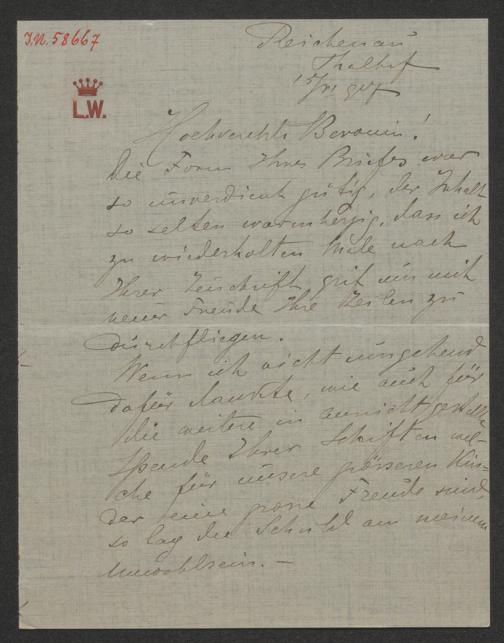 I.N. 58667
L.W.
Reichenau
Thalhof
Hochverehrte Baronin!
Die Form Ihres Briefes war
so unverdient gütig, der Inhalt
so selten warmherzig, dass ich
zu wiederholten Male nach
Ihrer Zuschrift griff um mit
neuer Freude Ihre Zeilen zu
durchfliegen.
Wenn ich nicht umgehend
dafür dankte, wie auch für
die weitere in aussicht gestellte
Spende Ihrer Schriften wel-
che für unsere grösseren Kin-
der eine grosse Freude sind,
so lag die Schuld an meinem
Unwohlsein. —